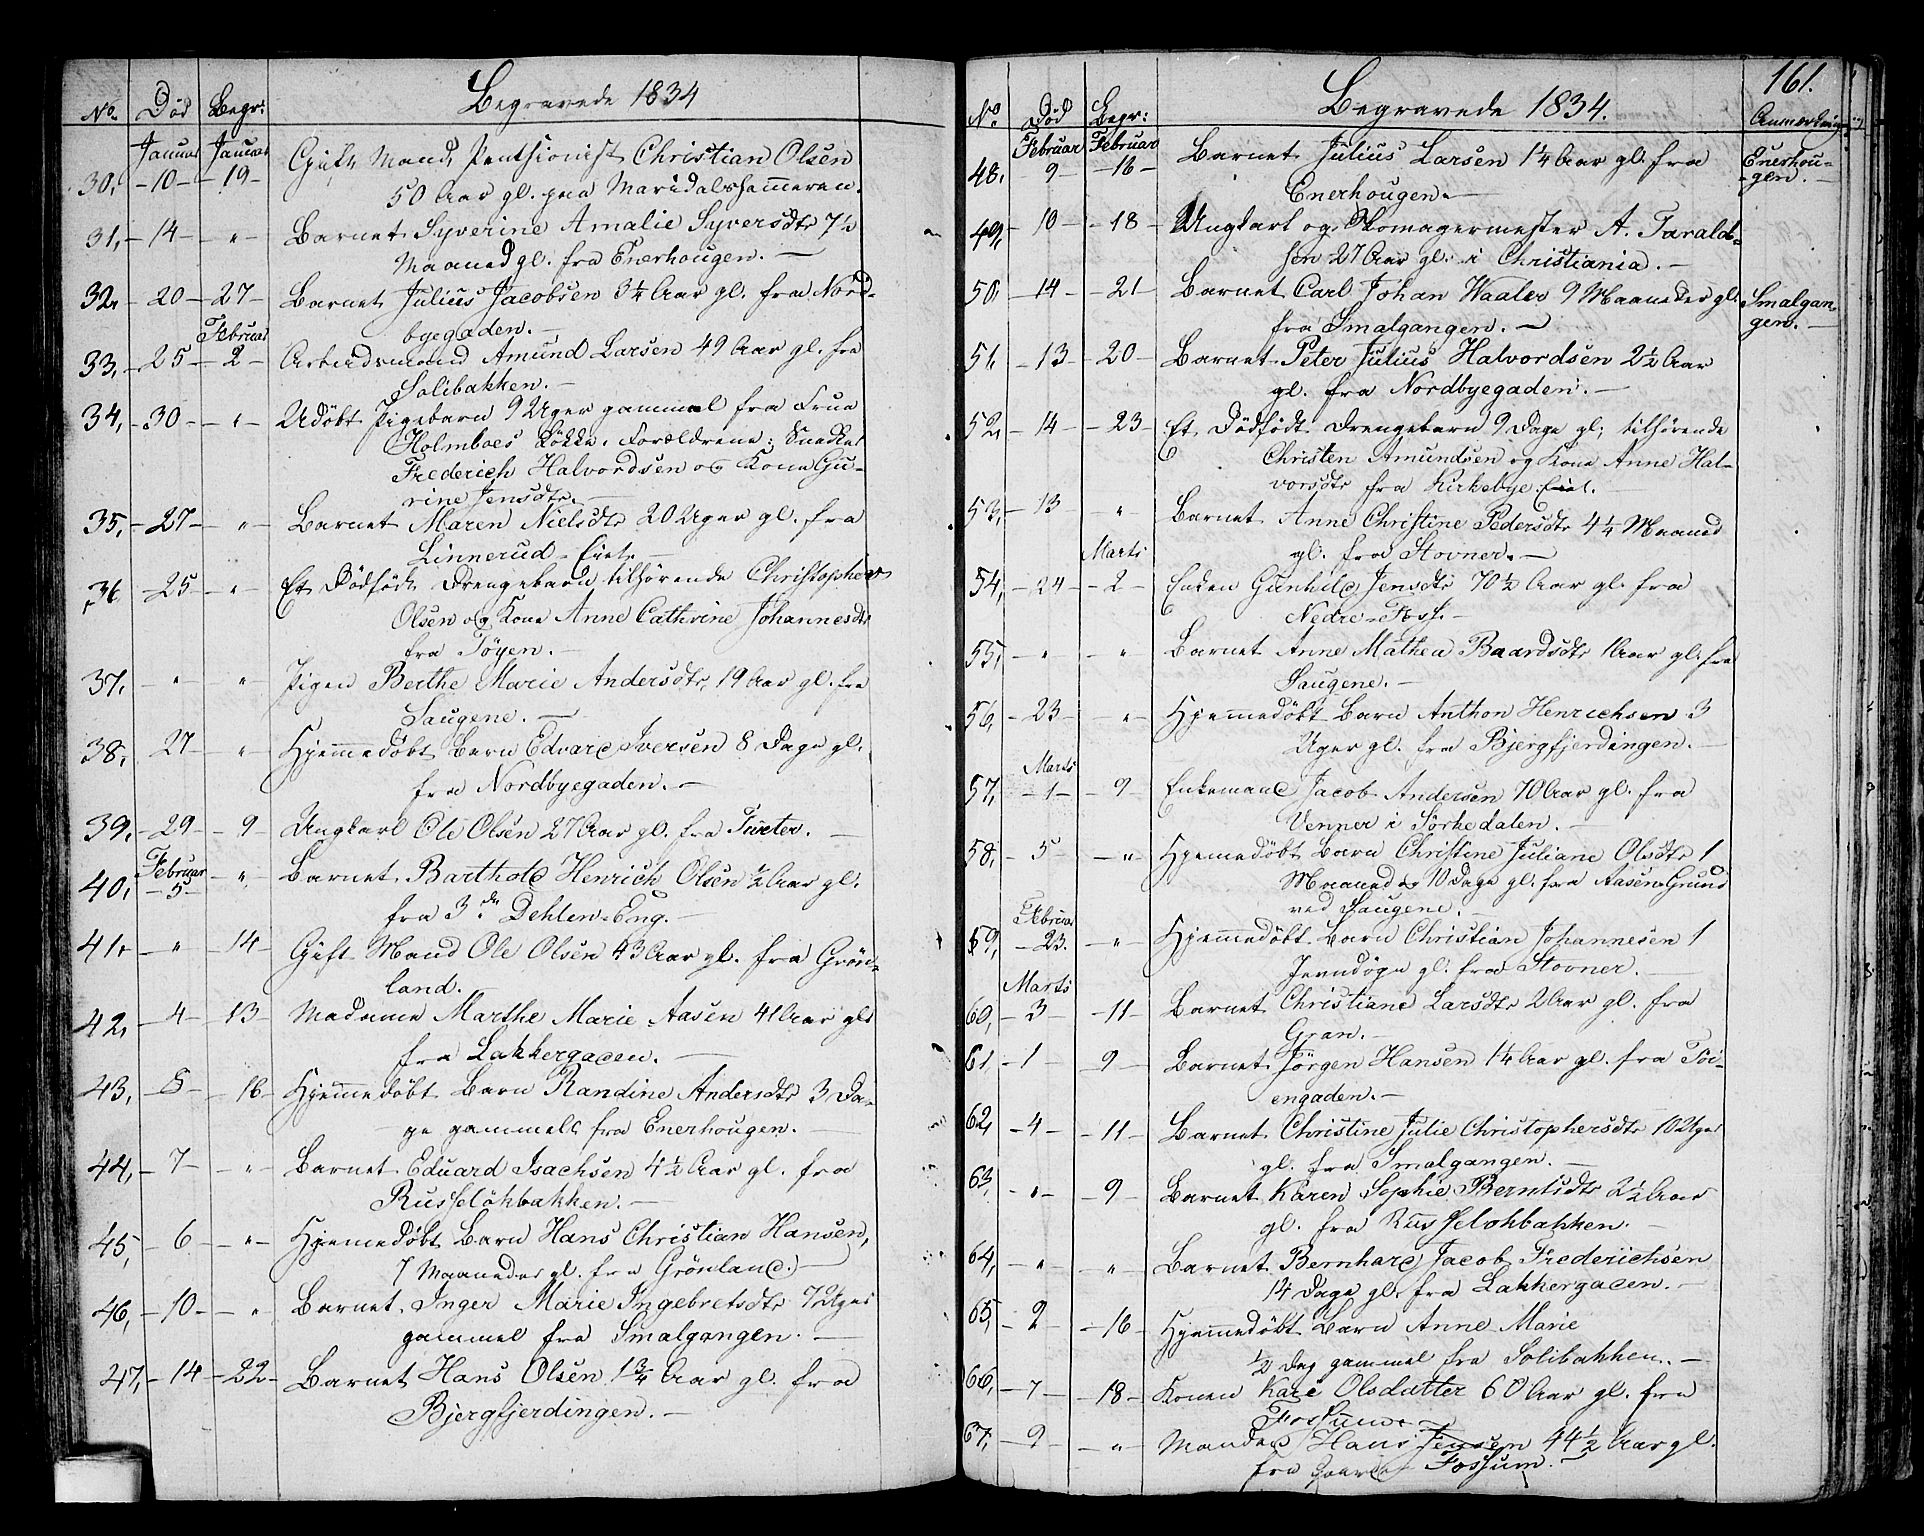 No. Død Begr: Begravede 1834
Januar Januar
30, -10- -19- Gift Mand Pentsionist Christian Olsen
50 Aar gl. paa Maridalshammeren.
31, -14- -"- Barnet Syverine Amalie Syversdtr 7½
Maaned gl. fra Enerhougen. —
32, -20- -27- Barnet Julius Jacobsen 3¼ Aar gl. fra Nord-
byegaden. —
Februar
33, -25- -2- Arbeidsmand Amund Larsen 49 Aar gl. fra
Solibakken. —
34, -30- -"- Udøbt Pigebarn 9 Uger gammel fra Frue
Holmboes Løkke. Forældrene: Snedker
Frederich Halvordsen og Kone Gu-
rine Jensdtr. —
35, -27- -"- Barnet Maren Nielsdtr 20 Uger gl. fra
Linnerud-Eiet. —
36, -25- -"- Et Dödfödt Drengebarn tilhørende Christopher
Olsen og Kone Anne Cathrine Johannesdtr
fra Töyen. —
37, " " Pigen Berthe Marie Andersdtr, 19 Aar gl. fra
Saugene. —
38, -27- " Hjemmedøbt Barn Edvard Iversen 8 Dage gl.
fra Nordbyegaden. —
39, -29- -9- Ungkarl Ole Olsen 27 Aar gl. fra Tveter. —
Februar
40, -5- -"- Barnet Barthold Henrich Olsen ½ Aar gl.
fra 3die Dehlen-Eng. —
41, -"- -14- Gift Mand Ole Olsen 43 Aar gl. fra Grön-
land. —
42, -4- -13- Madame Marthe Marie Aasen 41 Aar gl.
fra Lakkergaden. —
43, -5- -16- Hjemmedøbt Barn Randine Andersdtr 3 Da-
ge gammelt fra Enerhougen. —
44, -7- " Barnet Eduard Isachsen 4½ Aar gl. fra
Russelökbakken. —
45, -6- -"- Hjemedøbt Barn Hans Christian Hansen,
7 Maaneder gl. fra Grönland. —
46, -10- -"- Barnet Inger Marie Ingebretsdtr 7 Uger
gammel fra Smalgangen. —
47, -14- -22- Barnet Hans Olsen 1¾ Aar gl. fra
Bjergfjerdingen. —
161.
No. Død Begr: Begravede 1834. Anmerkning
Februar Februar
48, -9- -16- Barnet Julius Larsen 1¼ Aar gl. fra Enerhou-
Enerhougen. — -gen. —
49, -10- -18- Ungkarl og Skomagermester A. Tarald-
sen 27 Aar gl. i Christiania. —
50, -14- -21- Barnet Carl Johan Waaler 9 Maaneder gl. Smalgan-
fra Smalgangen. — gen. —
51, -13- -20- Barnet Peter Julius Halvordsen 2½ Aar
gl. fra Nordbyegaden. —
52, -14- -23- Et Dødfødt Drengebarn 9 Dage gl; tilhørende
Christen Amundsen og Kone Anne Hal-
vorsdtr fra Kirkebye-Eiet.
53, -13- " Barnet Anne Christine Pedersdtr 4¼ Maaned
gl. fra Stovner. —
Marts
54, -24- -2- Enken Gunhild Jensdtr 70½ Aar gl. fra
Nedre-Foss. —
55, -"- -"- Barnet Anne Mathea Baardsdtr 1 Aar gl. fra
Saugene. —
56, -23- -"- Hjemmedøbt Barn Anthon Henrichsen 3
Uger gl. fra Bjergfjerdingen. —
Marts
57, -1- -9- Enkemand Jacob Andersen 70 Aar gl. fra
Venner i Sörkedalen. —
58, -5- -"- Hjemedøbt Barn Christine Juliane Olsdtr 1
Maaned og 10 Dage gl. fra Aasen-Grund
ved Saugene. —
Februar
59, -23. -"- Hjemmedøbt Barn Christian Johannesen 1
Jevndögn gl. fra Stovner. —
Marts
60, -3- -11- Barnet Christiane Larsdtr 2 Aar gl. fra
Gran. —
61 -1- -9- Barnet Jörgen Hansen 1¼ Aar gl. fra Töi-
engaden. —
62, -4- -11- Barnet Christine Julie Christophersdtr 10 Uger
gl. fra Smalgangen. —
63, -"- -9- Barnet Karen Sophie Berntsdtr 2½ Aar
gl. fra Russelökbakken. —
64, -"- " Barnet Bernhard Jacob Frederichsen
14 Dage gl. fra Lakkergaden. —
65, -2- -16- Hjemmedøbt Barn Anne Marie
½ Dag gammel fra Solibakken. —
66, -7- -18- Konen Kari Olsdatter 60 Aar gl. fra
Fossum —
67, -9- " Manden Hans Jensen 44½ Aar gl.
fra Fossum. —